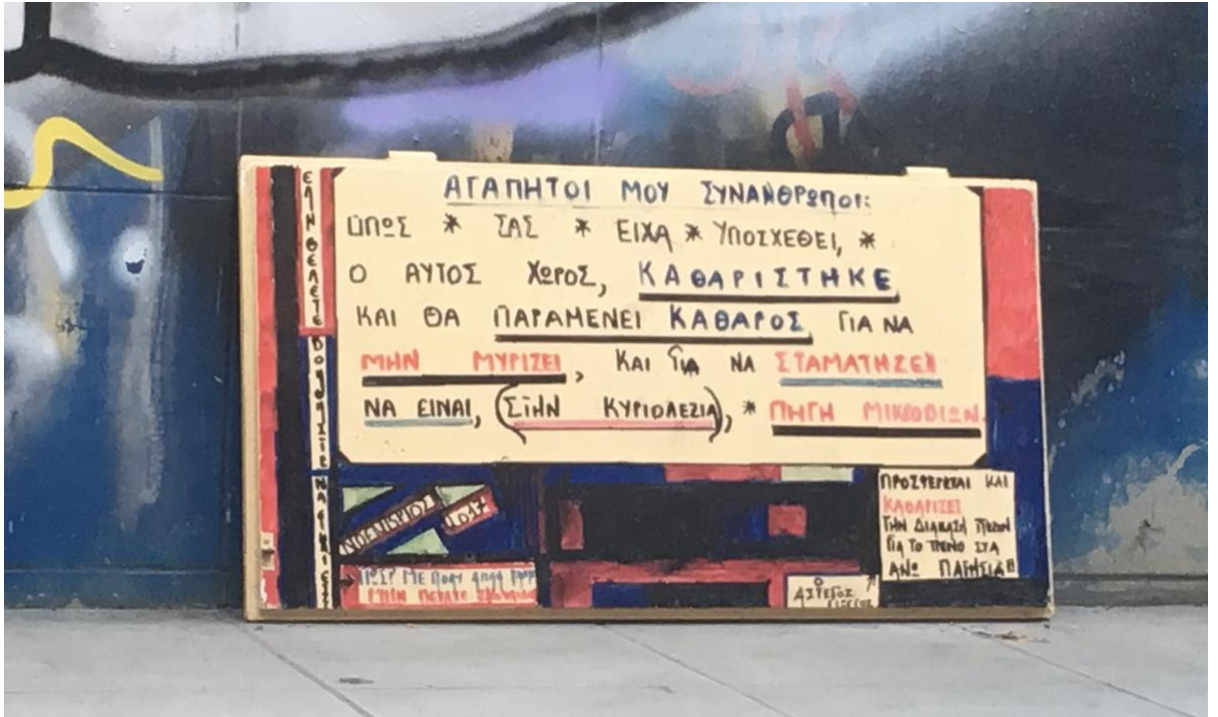 ΑΓΑΠΗΤΟΙ ΜΟΥ ΣΥΝΑΝΘΡΩΠΟΙ:
ΟΠΩΣ * ΣΑΣ * ΕΙΧΑ * ΥΠΟΣΧΕΘΕΙ, *
Ο ΑΥΤΟΣ ΧΩΡΟΣ, ΚΑΘΑΡΙΣΤΗΚΕ
ΚΑΙ ΘΑ ΠΑΡΑΜΕΝΕΙ ΚΑΘΑΡΟΣ ΓΙΑ ΝΑ
ΜΗΝ ΜΥΡΙΖΕΙ, ΚΑΙ ΓΙΑ ΝΑ ΣΤΑΜΑΤΗΣΕΙ
ΝΑ ΕΙΝΑΙ, (ΣΤΗΝ ΚΥΡΙΟΛΕΞΙΑ), * ΠΗΓΗ ΜΙΚΡΟΒΙΩΝ
ΘΕΛΕΤΕ
ΠΡΟΣΦΕΡΕΤΑΙ ΚΑΙ
ΚΑΘΑΡΙΖΕΙ
ΤΗΝ ΔΙΑΒΑΣΗ ΠΕΖΩΝ
ΓΙΑ ΤΟ ΤΡΕΝΟ ΣΤΑ
ΑΝΩ ΠΑΤΗΣΙΑ!!